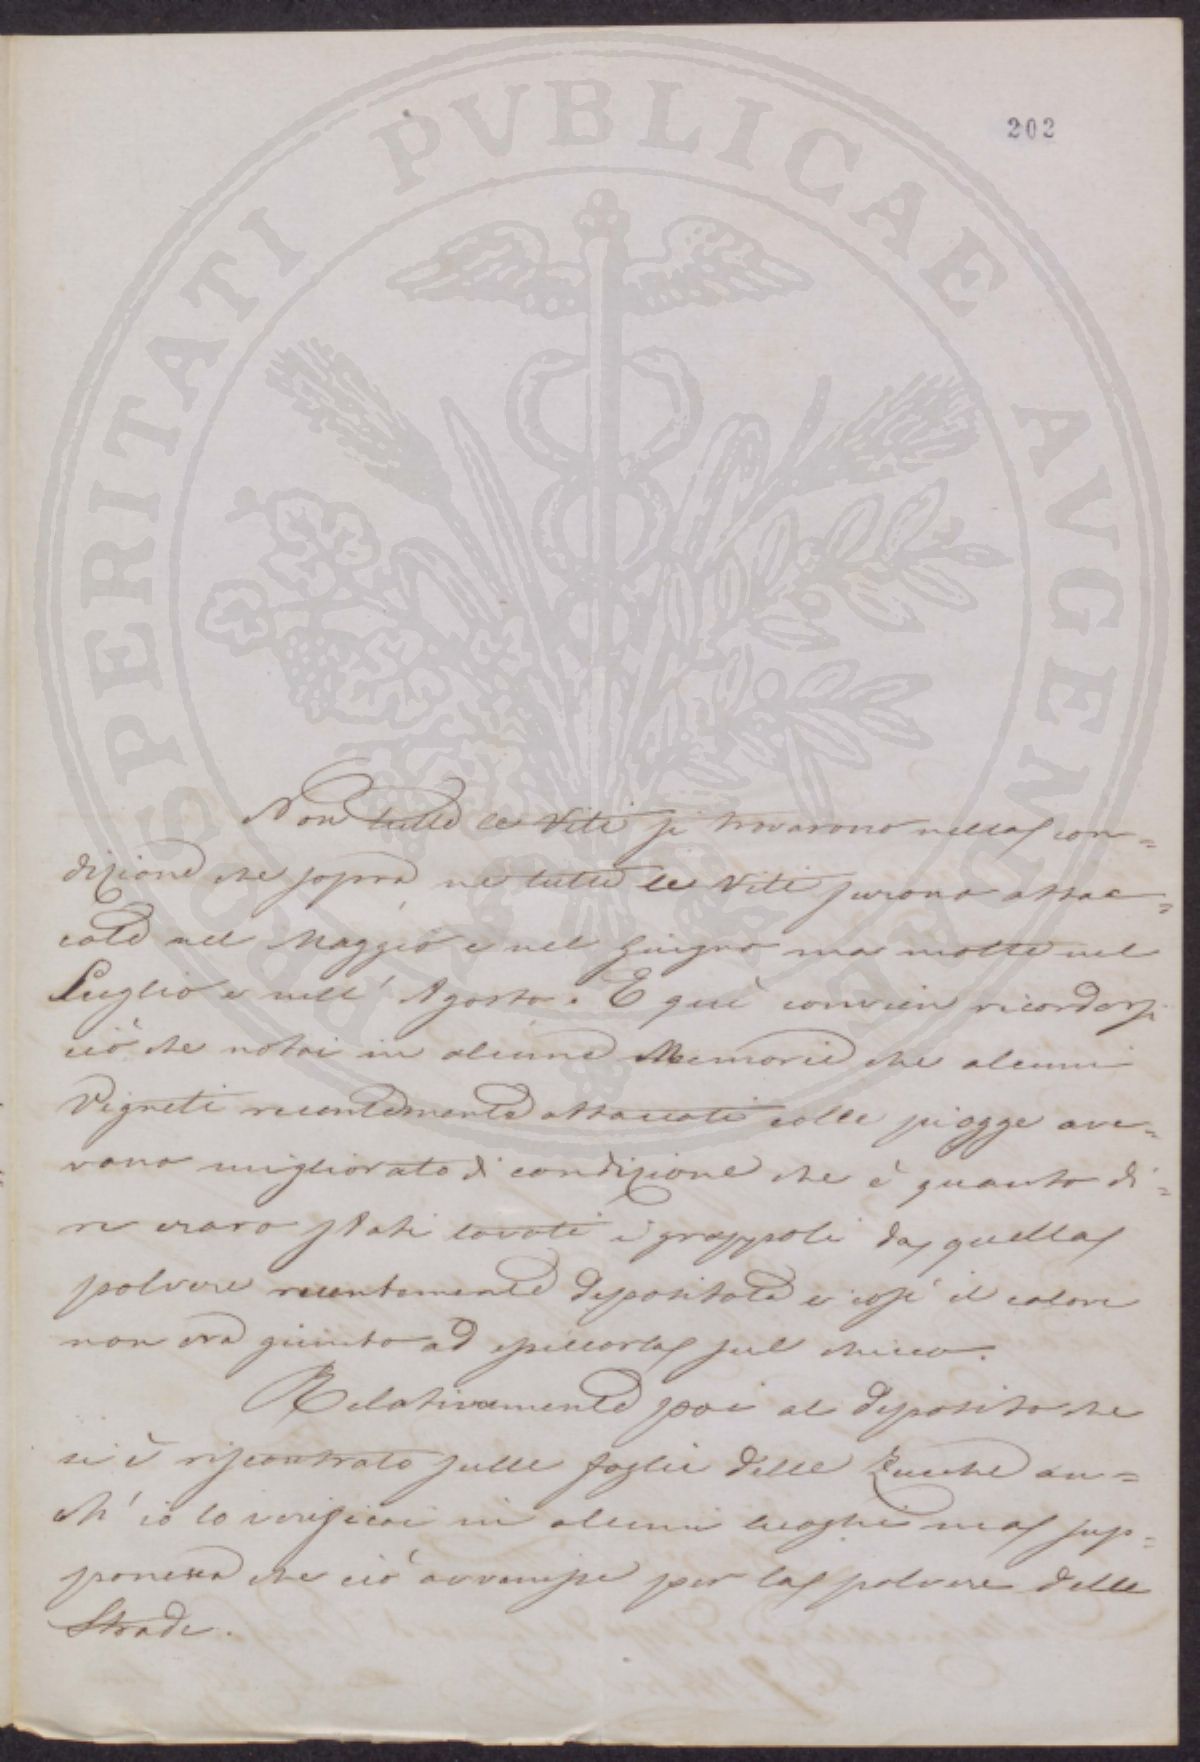 PROSPERITATI PVBLICAE AVGENDAE
202
Non tutte le Viti si trovarono nella con=
dizione che sopra ne tutte le Viti furono attac=
cate nel Maggio e nel Giugno ma molte nel
Luglio e nell' Agosto. E quì convien ricordarsi
ciò che notai in alcune Memorie che alcuni
Vigneti recentemente attaccati colle piogge ave=
vano migliorato di condizione che è quanto di=
re erano stati lavati i grappoli da quella
polvere recentemente depositata e così il calore
non era giunto ad spillarla sul chicco.
Relativamente poi al deposito che
si è riscontrato sulle foglie delle Zucche an=
ch' io lo verificai in alcuni luoghi ma sup=
poneva che ciò avvenisse per la polvere delle
Strade.